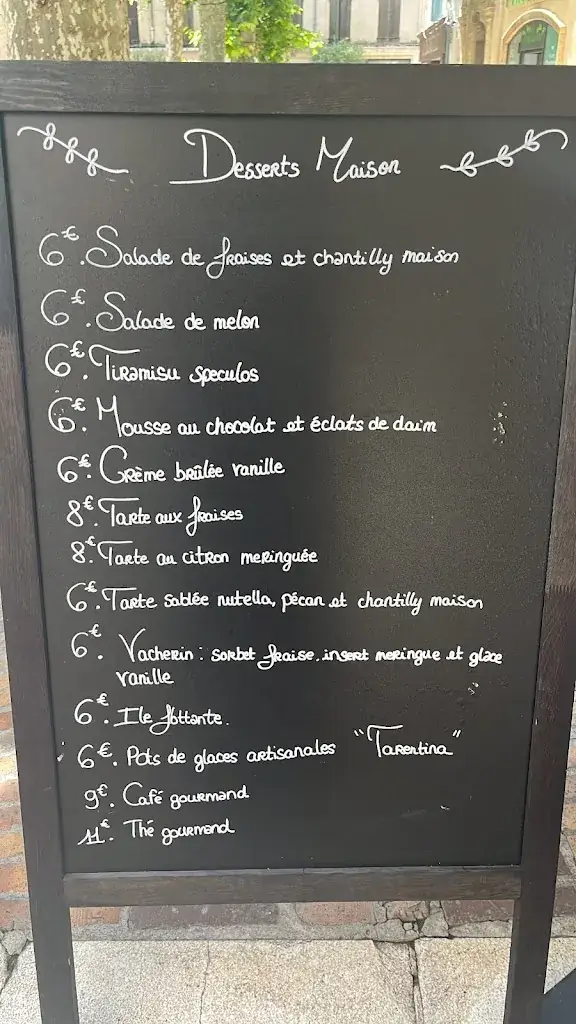 Desserts Maison
6€. Salade de fraises et chantilly maison
6€. Salade de melon
6€. Tiramisu speculos
6€. Mousse au chocolat et éclats de daim
6€. Crème brûlée vanille
8€. Tarte aux fraises
8€. Tarte au citron meringuée
6€. Tarte sablée nutella, pécan et chantilly maison
6€. Vacherin : sorbet fraise, insert meringue et glace
vanille
6€. Ile flottante.
6€. Pots de glaces artisanales "Tarentina"
9€. Café gourmand
11€. Thé gourmand